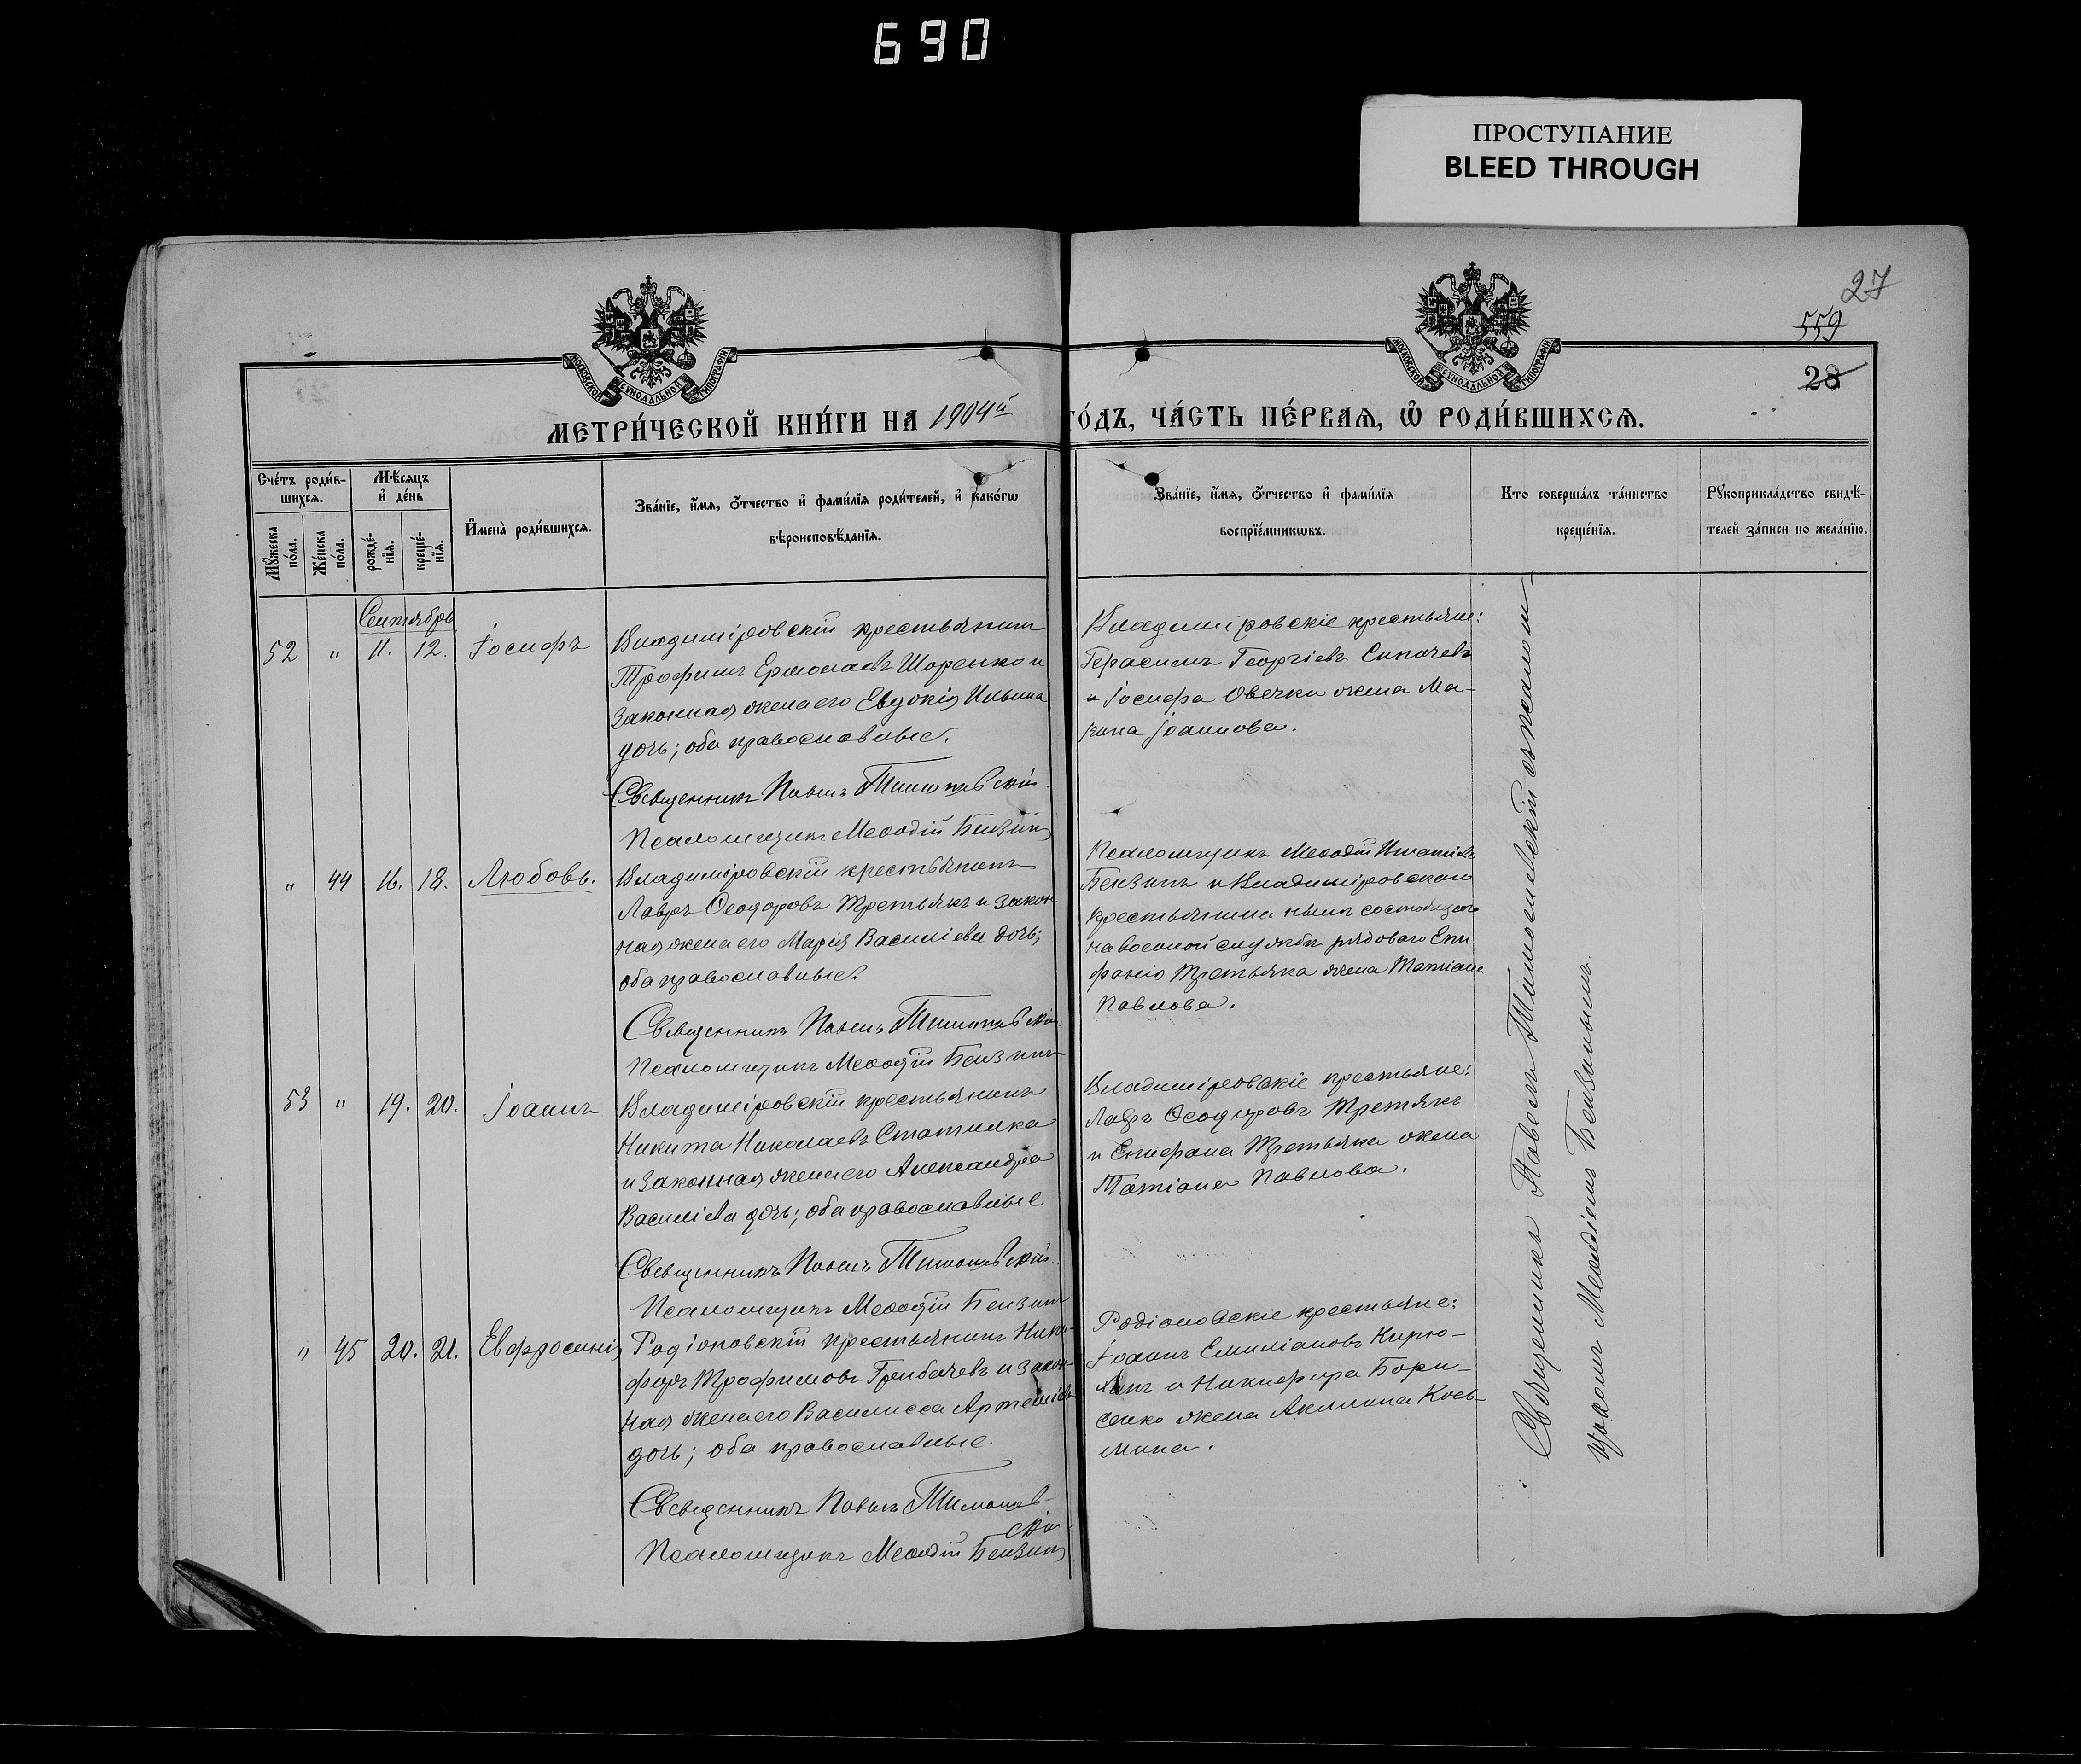 690
ПРОСТУПАНИЕ
BLEED THROUGH
27
559
28
МОСКОВСКОЙ СѴНОДАЛЬНОЙ ТИПОГРАФІИ
МОСКОВСКОЙ СѴНОДАЛЬНОЙ ТИПОГРАФІИ
МЕТРИ́ЧЕСКОЙ КНИ́ГИ НА 1904й ГО́ДЪ, ЧА́СТЬ ПЕ́РВАЯ, Ѿ РОДИ́ВШИХСЯ.
Сче́тъ роди́в-
шихся.
Мꙋ́жеска по́ла.
Же́нска по́ла.
Мѣ́сяцъ и҆ де́нь
рожде́-нїя.
креще́-нїя.
И҆мена̀ роди́вшихся.
Зва́нїе, и҆́мя, ѻ҆́тчество и҆ фами́лїя роди́телей, и҆ како́гѡ
вѣроисповѣ́данїя.
Зва́нїе, и҆́мя, ѻ҆́тчество и҆ фами́лїя
воспрїе́мникѡвъ.
Кто соверша́лъ та́инство
креще́нїя.
Рꙋкоприкла́дство свидѣ́-
телей за́писи по жела́нїю.
Сентябрь
52 " 11. 12. Іосифъ
Владиміровскій крестьянинъ
Трофимъ Ермолаевъ Шоренко и
законная жена его Евдокія Ильина
дочь; оба православные.
Священникъ Павелъ Тимошевскій.
Псаломщикъ Меѳодій Бензинъ
Владиміровскіе крестьяне:
Герасимъ Георгіевъ Сикачевъ
и Іосифа Овечки жена Ма-
рина Іоаннова.
" 44 16. 18. Любовь.
Владиміровскій крестьянинъ
Лавръ Ѳеодоровъ Третьякъ и закон
ная жена его Марія Василіева дочь;
оба православные.
Священникъ Павелъ Тимошевскій.
Псаломщикъ Меѳодій Бензинъ
Псаломщикъ Меѳодій Игнатіевъ
Бензинъ и Владиміровскаго
крестьянина нынѣ состоящаго
на военной службѣ рядоваго Епи
фанія Третьяка жена Татіана
Павлова.
53 " 19. 20. Іоаннъ
Владиміровскій крестьянинъ
Никита Николаевъ Статилка
и законная жена его Александра
Василіева дочь; оба православные.
Священникъ Павелъ Тимошевскій.
Псаломщикъ Меѳодій Бензинъ
Владиміровскіе крестьяне:
Лавръ Ѳеодоровъ Третякъ
и Епифана Третьяка жена
Татіана Павлова.
" 45 20. 21. Евфросинія
Родіоновскій крестьянинъ Ники-
форъ Трофимовъ Грибачевъ и закон-
ная жена его Василисса Артеміева
дочь; оба православные.
Священникъ Павелъ Тимошев-
скій
Псаломщикъ Меѳодій Бензинъ
Родіоновскіе крестьяне:
Іоаннъ Емиліановъ Кирю-
хинъ и Никифора Бори-
сенко жена Акилина Косъ-
мина.
Священникъ Павелъ Тимошевскій съ псалом-
щикомъ Меѳодіемъ Бензинымъ.